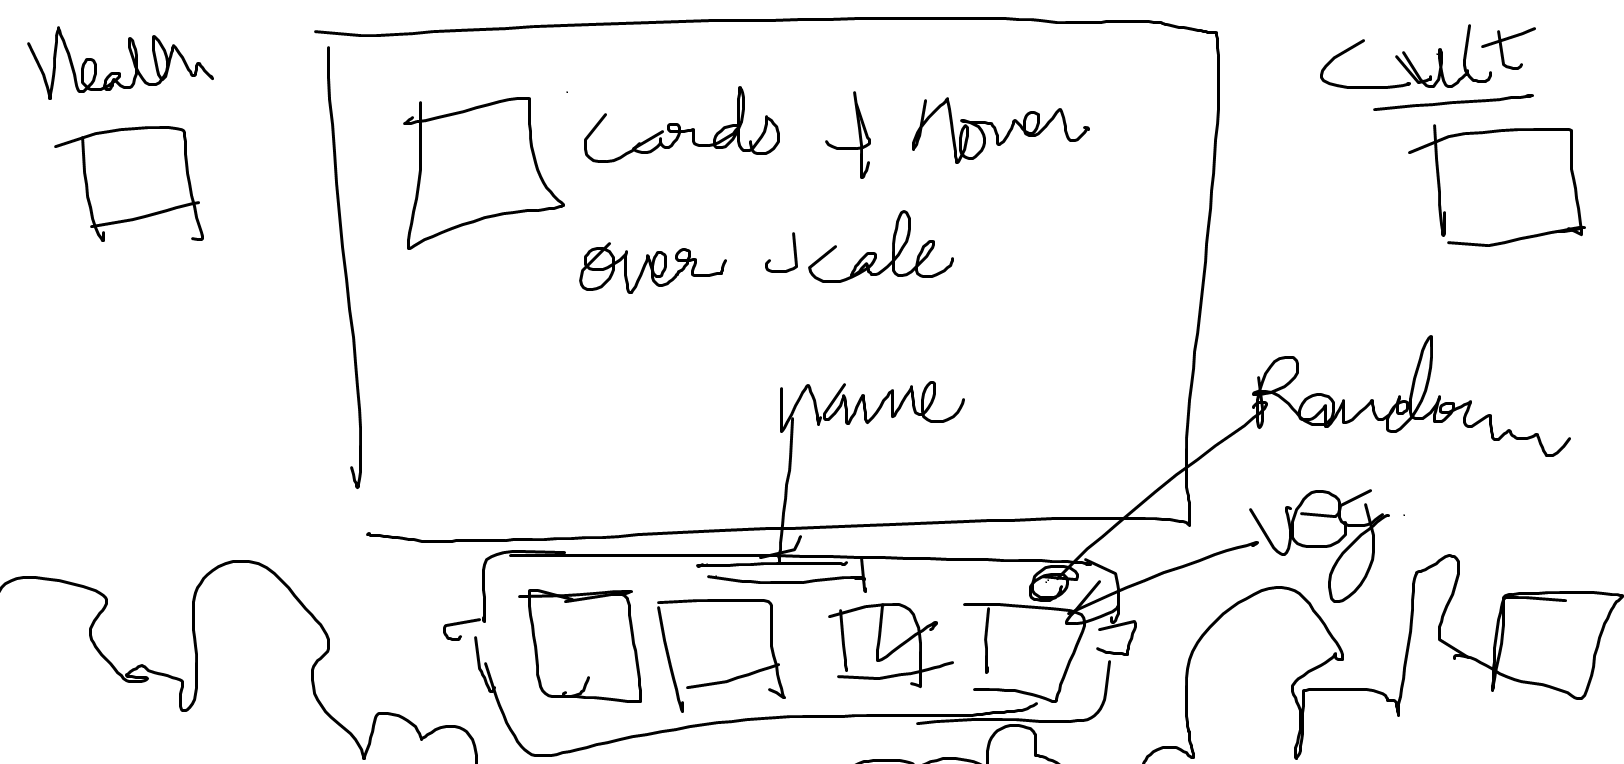 Health
Cult
Cards + Hover
over scale
name
Random
veg